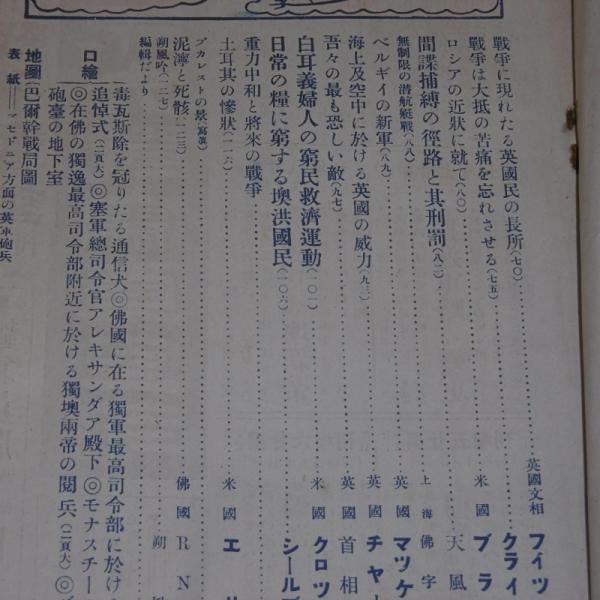 戰爭に現れたる英國民の長所(七〇)……英國文相 フイツ
戰爭は大抵の苦痛を忘れさせる(七五)……クライ
ロシアの近狀に就て(八〇)……米國 ブラ
間諜捕縛の徑路と其刑罰(八二)……天風
無制限の潜航艇戰(八八)……上海佛字
ベルギイの新軍(八九)……英國 マツケ
海上及空中に於ける英國の威力(九二)……英國 チヤ
吾々の最も恐しい敵(九七)……英國首相
白耳義婦人の窮民救濟運動(一〇一)……米國 クロツ
日常の糧に窮する墺洪國民(一〇六)……シール
重力中和と將來の戰爭
土耳其の慘狀(一一六)……米國 エ
ブカレストの景(寫眞)
泥濘と死骸(一二三)……佛國 R N
朔風吟(一二七)……朔
編輯だより
口繪
毒瓦斯除を冠りたる通信犬◎佛國に在る獨軍最高司令部に於ける
追悼式(二頁大)◎塞軍總司令官アレキサンダア殿下◎モナスチー
◎在佛の獨逸最高司令部附近に於ける獨墺兩帝の閲兵(二頁大)◎
砲臺の地下室
地圖(巴爾幹戰局圖
表紙──マセドニア方面の英軍砲兵